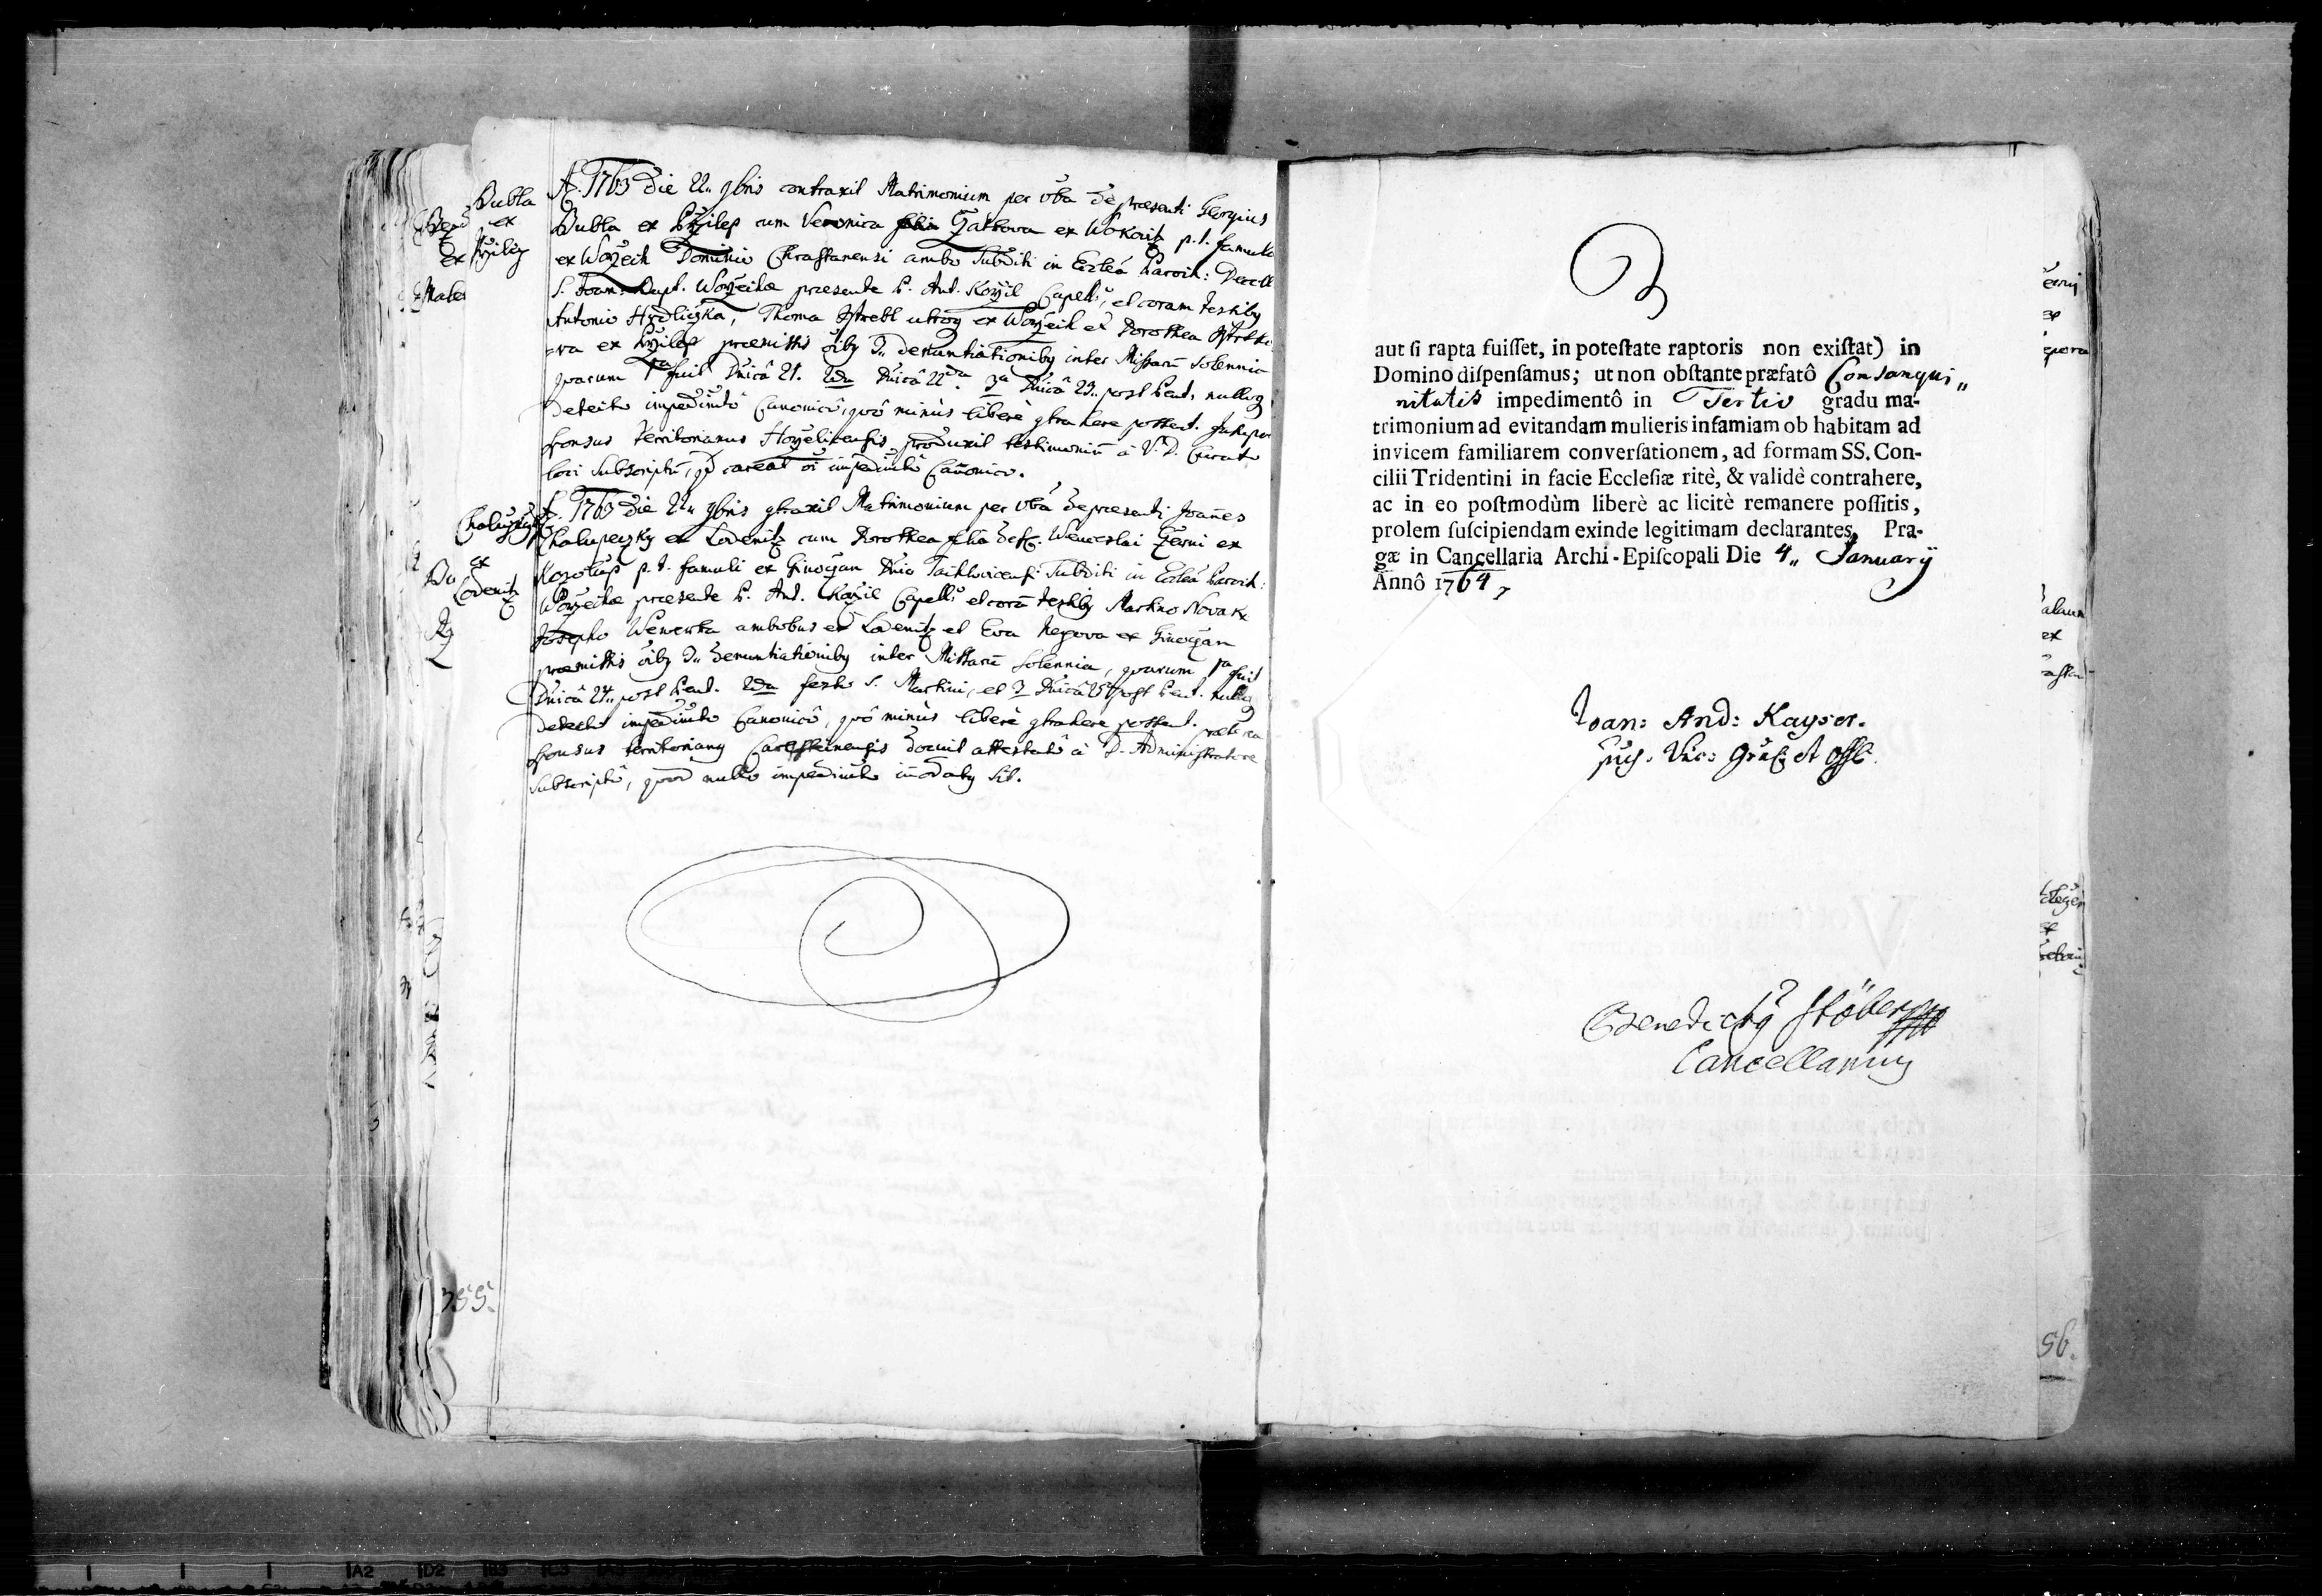 Bubla
ex
Przilep
A. 1763 Die 22„ 9bris contraxit Matrimonium per vba de praesenti Georgius
Bubla ex Przilep cum Veronica Gatkova ex Wokorz p.t. famula
ex Worzech Dominio Chrastanensi ambo Subditi in Ecclea Paroch: Decoll
S. Joan: Bapt. Worzechae praesente P. Ant. Kozil Capell, et coram testiby
Antonio Hrdliczka, Thoma utroq ex Worzech et Dorothea
va ex Przilep praemissis oiby 3„ denuntiationiby inter Missaru Solennia
quarum 1ma fuit Dnicâ 21. 2da Dnicâ 22da. 3a Dnicâ 23„ post Pent. nulloq
detecto impedimtô Canonicô, quô minùs liberè gtrahere possent. Insuper
sponsus territorianus produxit testimoniu à V. D. Curato
loci Subscriptu, qd careat oi impedimtô Canonico.
Chalupezky
ex
Lodenitz
A. 1763 Die 22„ 9bris gtraxit Matrimonium per vba de praesenti Joanes
Chalupezky ex Lodenitz cum Dorothea filia def. Wenceslai Czerni ex
Kozolup p.t. famuli ex Ginoczan Dnio Tachlovicensi Subditi in Ecclea Paroch:
Worzechae praesente P. Ant. Kozil Capell et corā testiby Martino Novak
Josepho Wenerka ambobus ex Lodenitz et Eva Negova ex Ginoczan
praemissis oiby 3„ denuntiationiby inter Missarū Solennia, quarum 1ma fuit
Dnicâ 24„ post Pent. 2da festo S. Martini, et 3 Dnicâ 25 post Pent. nulloq
detecto impedimto Canonicô, quô minùs liberè gtrahere possent. praeterea
sponsus territoriany Carlsteinensis docuit attestatô à D. Administratore
Subscriptô, quod nullo impedimto inodaty sit.
355.
aut ſi rapta fuiſſet, in poteſtate raptoris non exiſtat) in
Domino diſpenſamus; ut non obſtante præfatô Consangui„
nitatis impedimentô in Tertio gradu ma-
trimonium ad evitandam mulieris infamiam ob habitam ad
invicem familiarem converſationem, ad formam SS. Con-
cilii Tridentini in facie Eccleſiæ ritè, & validè contrahere,
ac in eo poſtmodùm liberè ac licitè remanere poſſitis,
prolem ſuſcipiendam exinde legitimam declarantes. Pra-
gæ in Cancellaria Archi-Epiſcopali Die 4„ Januarÿ
Annô 1764,
Joan: And: Kayser.
Vic: et Offl.
Benedictg Stöber
Cancellariug
56.